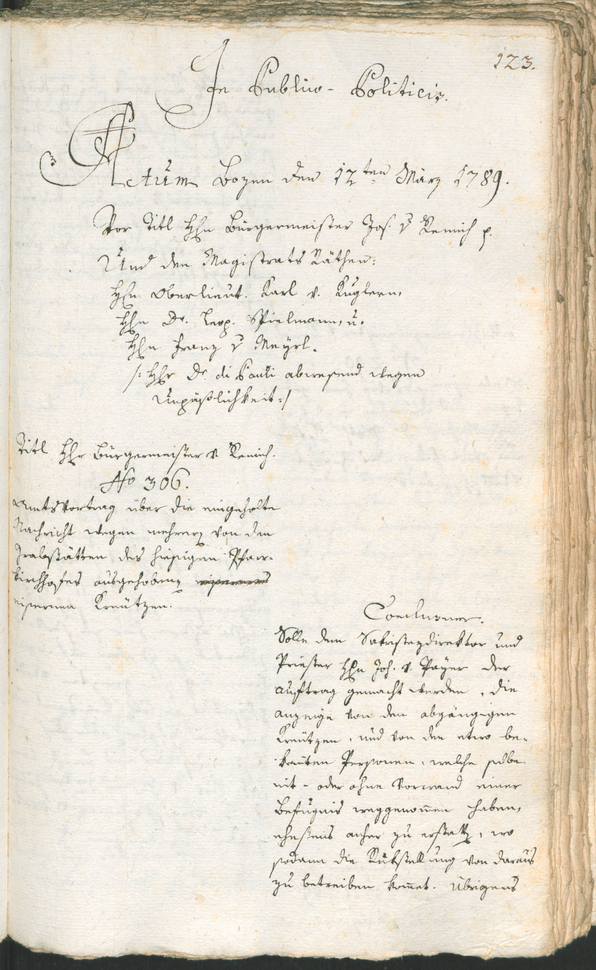 123.
In Publico-Politicis.
Actum Bozen den 12ten März 1789.
Vor Titl Hhn Bürgermeister Jos. v Remich p.
Und den Magistrats Räthen:
Hhn Oberlieut. Karl v. Kuglern,
Hhn Dr. Leop. Spielmann, u.
Hhn Franz v Mayrl.
/: Hhr Dr. di Pauli abwesend wegen
Unpäßlichkeit :/
Titl Hhr Bürgermeister v Remich.
No 306.
Amtsvortrag über die eingeholte
Nachricht wegen mehrerer von den
Grabstätten des hiesigen Pfarr-
kirchhofes ausgehobenen
eisernen Kreützen.
Conclusum.
Solle dem Sakristeydirektor und
Priester Hhn Joh. v. Payer der
Auftrag gemacht werden, die
Anzeige von den abgängigen
Kreützen, und von den etwo be-
kanten Personen, welche selbe
mit- oder ohne Vorwand einer
Befugniß weggenommen haben,
ehestens anher zu erstatten, wo
sodann die Rükstellung von daraus
zu betreiben kommet. Übrigens